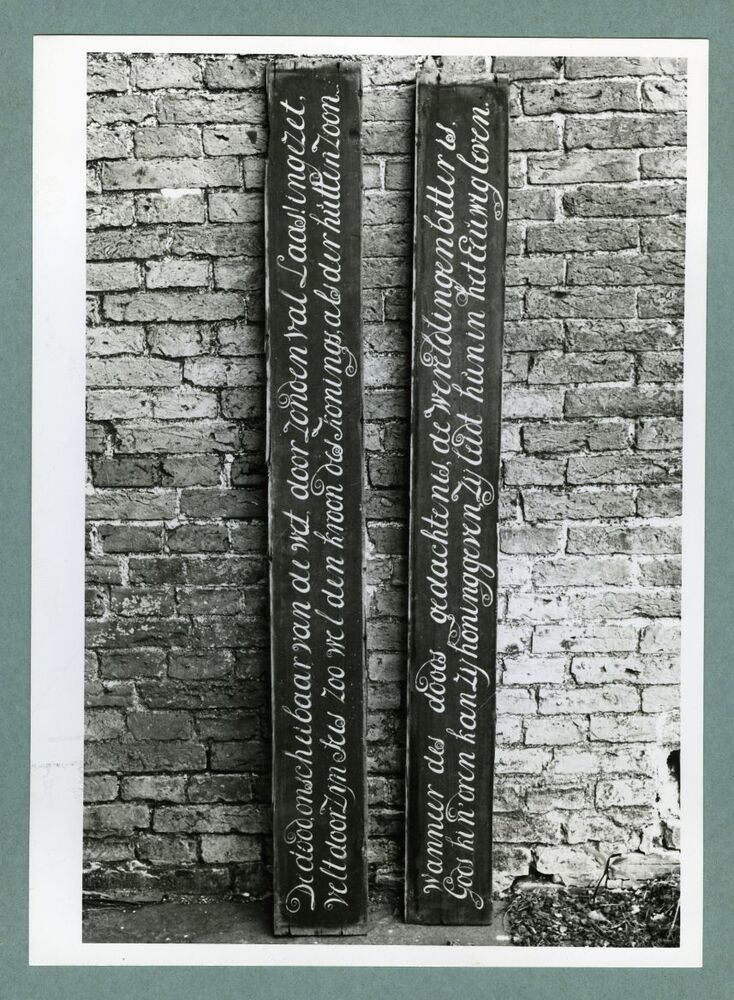 De dood, onscheibaar, van de wet, door zonden val Laas! ingezet,
velt door zyn zeis zoo wel den kroon des Konings, als der hutten zoon.
Wanneer des doods gedachtenis, de wereldlingen bitter is,
Gods kind'oren kan zy honing geven, Zy leidt hun in het Eeuwig leven.